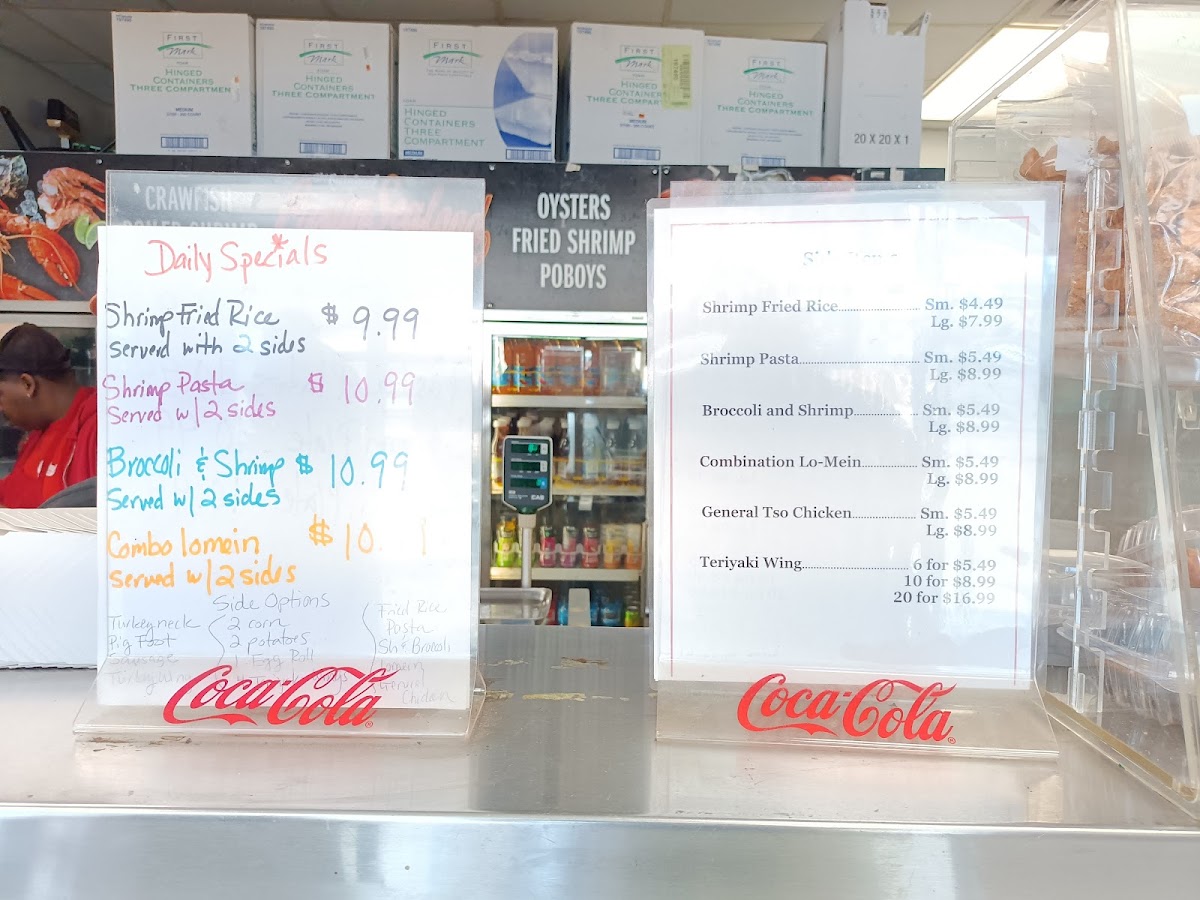 FIRST
Mark
HINGED
CONTAINERS
THREE COMPARTMENT
MEDIUM
FIRST
Mark
HINGED
CONTAINERS
THREE COMPARTMENT
FIRST
Mark
HINGED
CONTAINERS
THREE
COMPARTMENT
FIRST
Mark
HINGED
CONTAINERS
THREE COMPARTMENT
FIRST
Mark
HINGED
CONTAINERS
THREE COMPARTMENT
20 X 20 X 1
CRAWFISH
OYSTERS
FRIED SHRIMP
POBOYS
Daily Specials
Shrimp Fried Rice $ 9.99
Serverd with 2 sides
Shrimp Pasta $ 10.99
Served w/2 sides
Broccoli & Shrimp $ 10.99
Served w/2 sides
Combo lomein $ 10.
Served w/2 sides
Side Options
Turkey neck
Pig Foot
Sausage
Turkey Wing
2 corn
2 potatoes
1 Egg Roll
Fried Rice
Pasta
Sh & Broccoli
Lomein
General
Chicken
Coca-Cola
CAS
Shrimp Fried Rice Sm. $4.49
Lg. $7.99
Shrimp Pasta Sm. $5.49
Lg. $8.99
Broccoli and Shrimp Sm. $5.49
Lg. $8.99
Combination Lo-Mein Sm. $5.49
Lg. $8.99
General Tso Chicken Sm. $5.49
Lg. $8.99
Teriyaki Wing 6 for $5.49
10 for $8.99
20 for $16.99
Coca-Cola